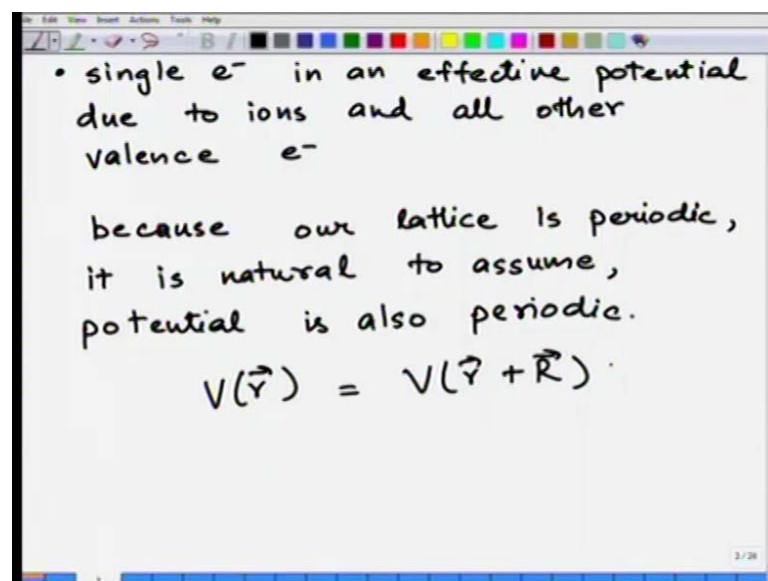 Edit View Insert Actions Tools Help
• single e⁻ in an effective potential
due to ions and all other
valence e⁻
because our lattice is periodic,
it is natural to assume,
potential is also periodic.
V(r⃗) = V(r⃗ + R⃗)